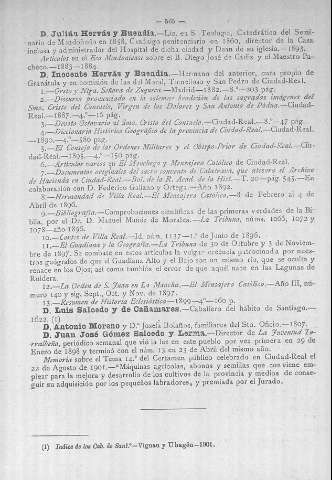 — 565 —
D. Julián Hervás y Buendía.—Lic. en S. Teología, Catedrático del Semi-
nario de Mondoñedo en 1858, Canónigo penitenciario en 1860, director de la Casa
inclusa y administrador del Hospital de dicha ciudad y Dean de su iglesia.—1893.
Artículos en el Eco Mindoniense sobre el B. Diego José de Cádiz y el Maestro Pa-
checo.—1883—1884.
D. Inocente Hervás y Buendía.—Hermano del anterior, cura propio de
Granátula y en comisión de las del Moral, Tomelloso y San Pedro de Ciudad-Real.
1.—Greta y Nitga, Señora de Zuqueca.—Madrid—1882.—8.º—203 pág.
2.—Discurso pronunciado en la solemne bendición de las sagradas imágenes del
Smo. Cristo del Consuelo, Virgen de los Dolores y San Antonio de Padua.—Ciudad-
Real.—1887.—4.º—16 pág.
3.—Devoto Octavario al Smo. Cristo del Consuelo.—Ciudad-Real.—8.º—47 pág.
4.—Diccionario Histórico Geográfico de la provincia de Ciudad-Real.—Ciudad-Real.
—1890.—4.º—580 pag.
5.—El Consejo de las Ordenes Militares y el Obispo-Prior de Ciudad-Real.—Ciu-
dad-Real—1893.—4.º—
6.—Artículos varios en El Manchego y Mensajero Católico de Ciudad-Real.
7.—Documentos originales del sacro convento de Calatrava, que atesora el Archivo
de Hacienda en Ciudad-Real.—Bol. de la R. Acad. de la Hist.— T. 20—pág. 545.—En
colaboración con D. Federico Galiano y Ortega.—Año 1892.
8.—Hermandad de Villa Real.—El Mensajero Católico.—8 de Febrero al 4 de
Abril de 1896.
9.—Bibliografía.—Comprobaciones científicas de las primeras verdades de la Bi-
blia, por el Dr. D. Manuel Muncz de Morales.—La Tribuna, núms. 1066, 1072 y
1078—año 1896.
10.—Cortes de Villa Real.—Id. núm. 1137—1.º de Junio de 1896.
11.—El Guadiana y la Geografía.—La Tribuna de 30 de Octubre y 3 de Noviem-
bre de 1897. Se combate en estos artículos la vulgar creencia patrocinada por maes-
tros geógrafos de que el Guadiana Alto y el Bajo son un mismo río, que se oculta y
renace en los Ojos; así como también el error de que aquél nace en las Lagunas de
Ruidera.
12.—La Orden de S. Juan en La Mancha.—El Mensajero Católico.—Año III, nú-
mero 140 y sig. Sept., Oct. y Nov. de 1897.
13.—Resumen de Historia Eclesiástica—1899—4.º—160 p.
D. Luis Salcedo y de Cañamares.—Caballero del hábito de Santiago.—
1622. (1)
D. Antonio Moreno y D.ª Josefa Bolaños, familiares del Sto. Oficio.—1807.
D. Juan José Gómez Salcedo y Lerma.—Director de La Juventud To-
rralbeña, periódico semanal que vió la luz en este pueblo por vez primera en 29 de
Enero de 1898 y terminó con el núm. 13 en 23 de Abril del mismo año.
Memoria sobre el Tema 14.º del Certamen público celebrado en Ciudad-Real el
22 de Agosto de 1901.—"Máquinas agrícolas, abonos y semillas que con viene em-
plear para la mejora y desarrollo de los cultivos de la provincia y medios de conse-
guir su adquisición por los pequeños labradores„ y premiada por el Jurado.
(1) Indice de los Cab. de Sant.º—Vignau y Uhagón—1901.